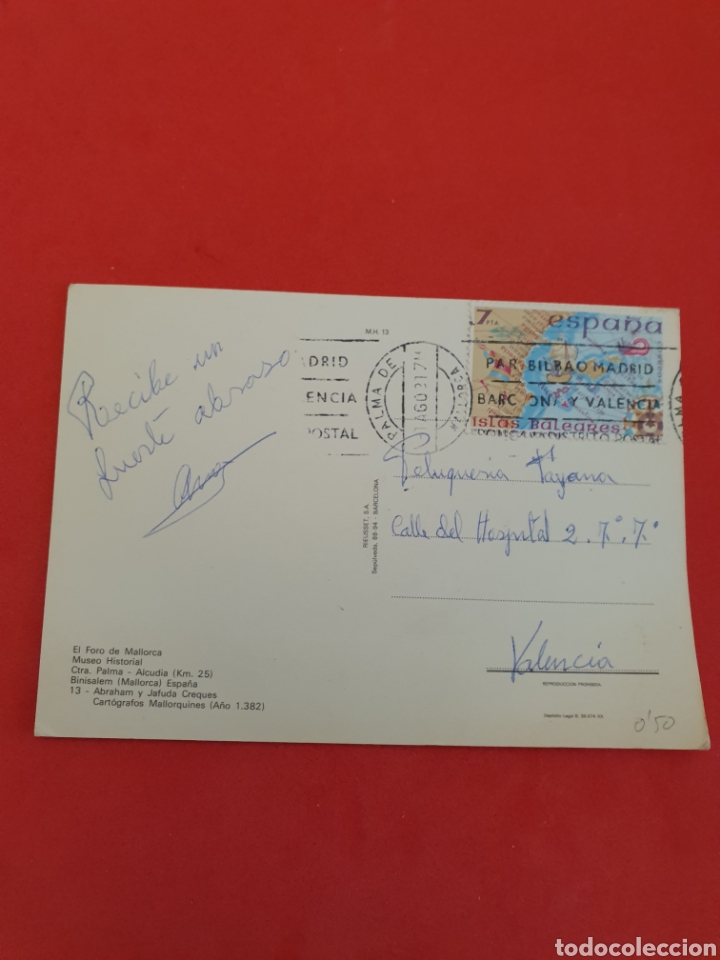 M.H. 13
7 PTA
españa
ADRID
ENCIA
POSTAL
PALMA DE
AGO
PAR BILBAO MADRID
BARC ONA Y VALENCIA
Islas Baleares
Recibe un
fuerte abraso
Peluqueria Tayana
Calle del Hospital 2. 7.º. 7.º
Valencia
RIEUSSET, S.A.
Sepúlveda, 88-94 - BARCELONA
REPRODUCCION PROHIBIDA
El Foro de Mallorca
Museo Historial
Ctra. Palma - Alcudia (Km. 25)
Binisalem (Mallorca) España
13 - Abraham y Jafuda Creques
Cartógrafos Mallorquines (Año 1.382)
0'50
todocoleccion